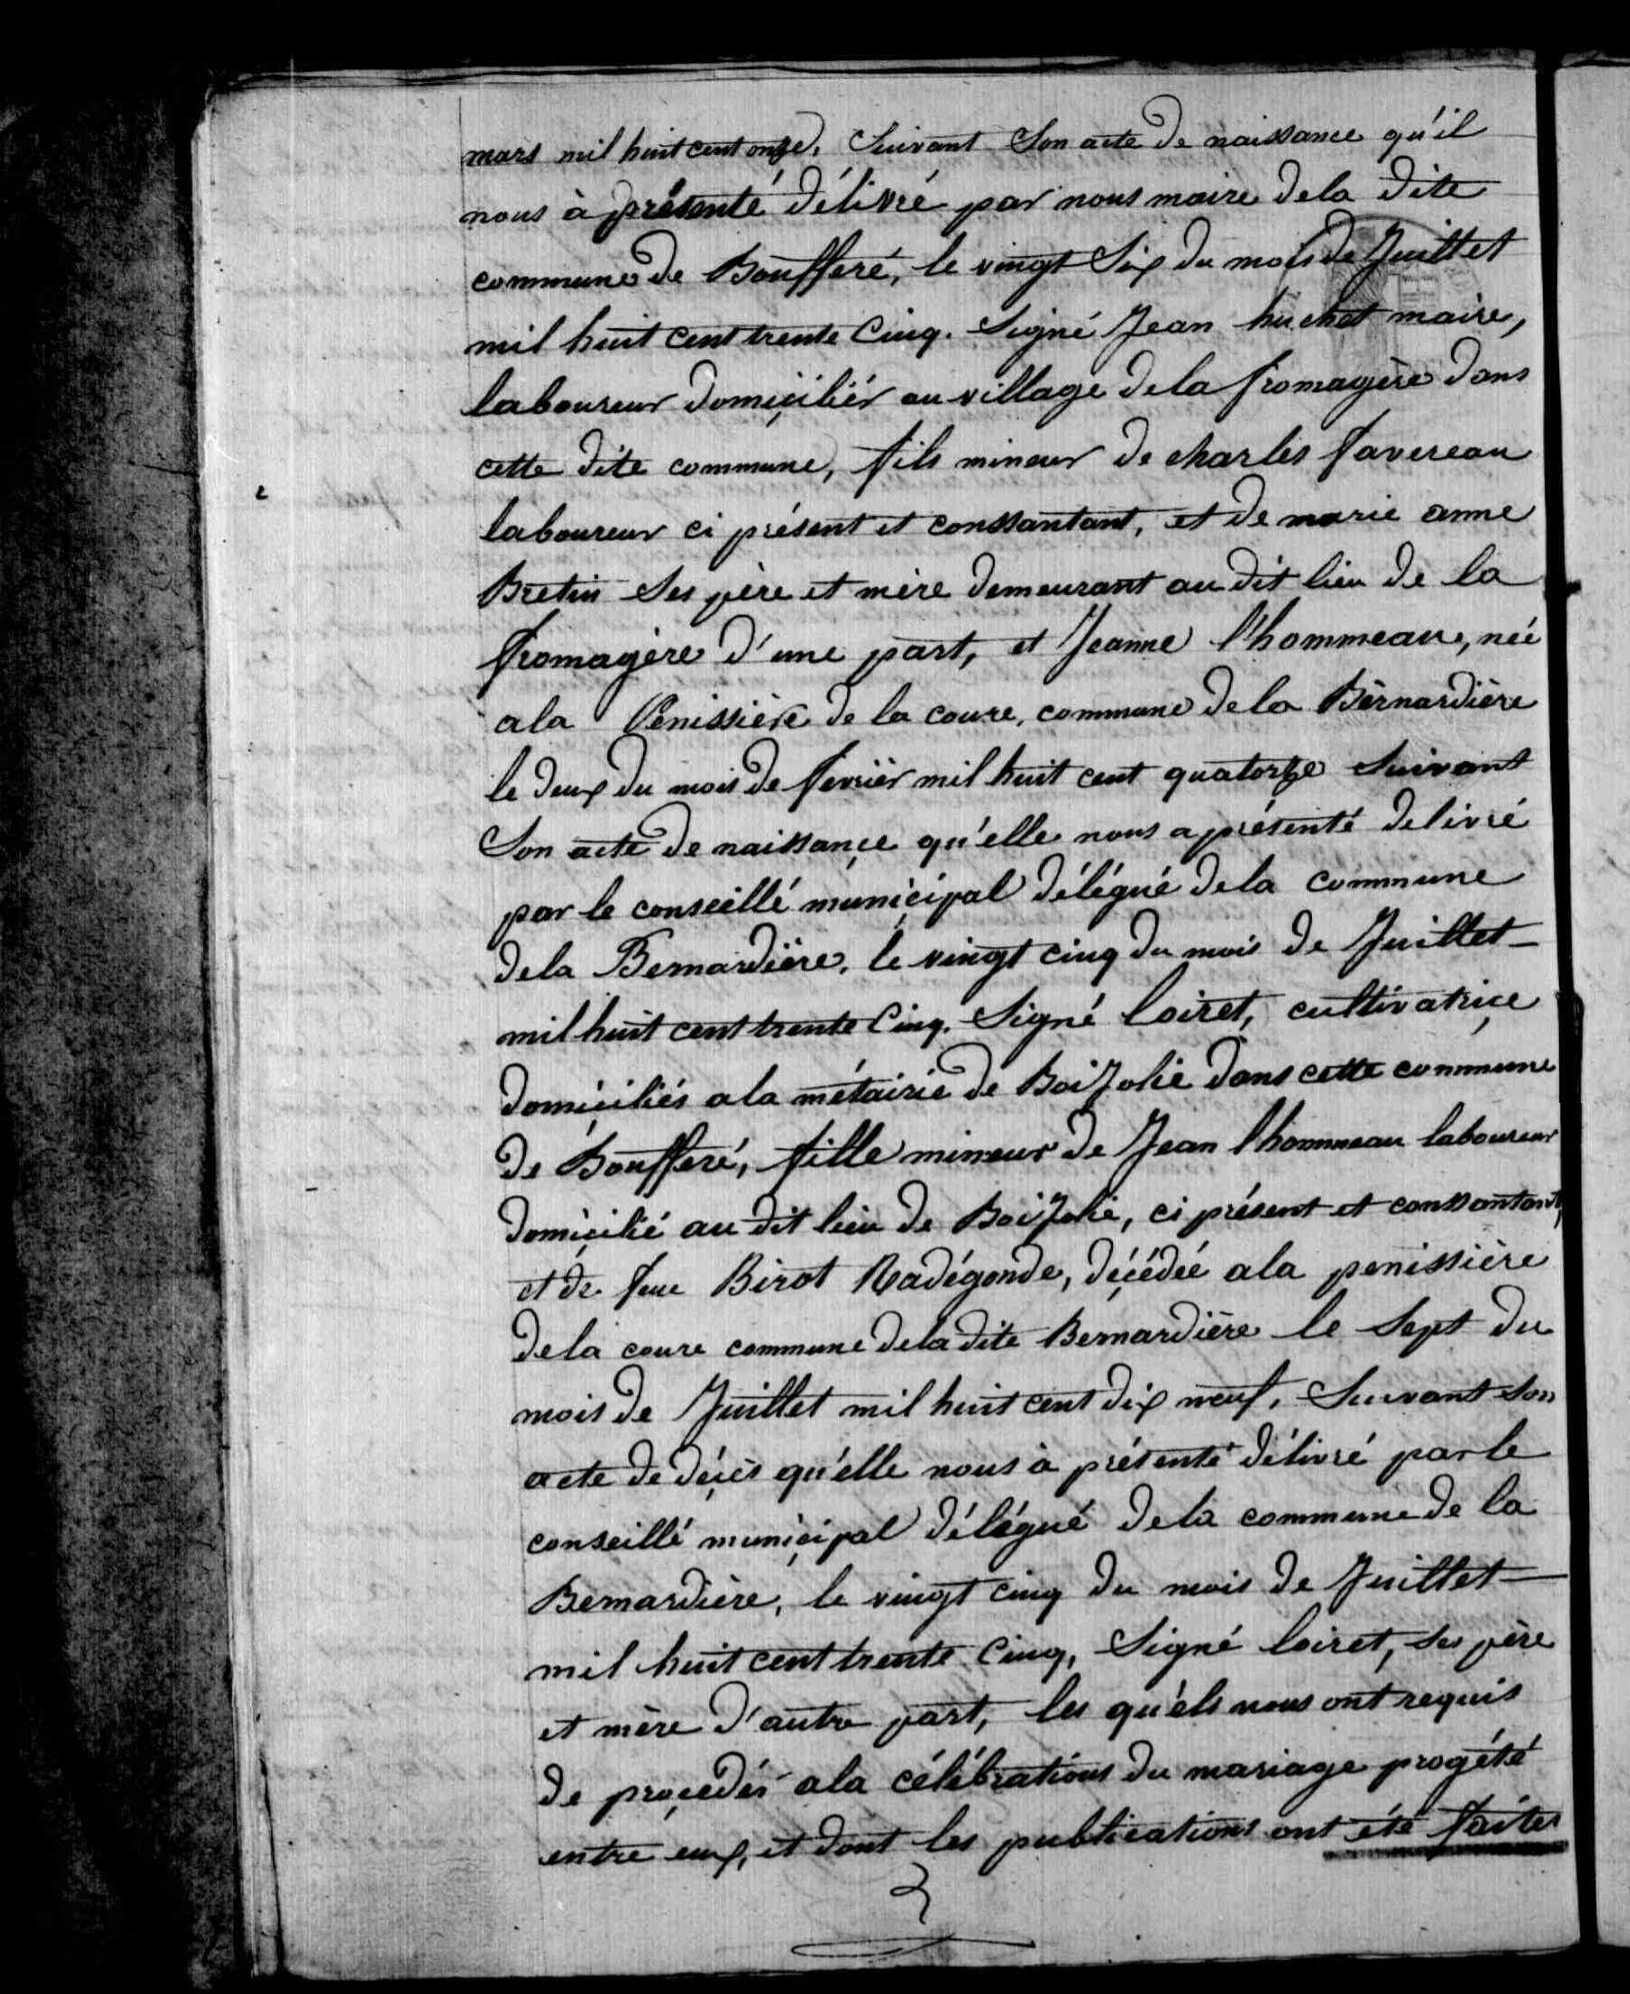 mars mil huit cent onze, Suivant Son acte de naissance qu'il
nous à présenté délivré par nous maire dela dite
commune de Boufferé, le vingt Six du mois de Juillet
mil huit cent trente Cinq. Signé Jean huchet maire,
laboureur domiçiliér au village dela fromagère dans
cette dite commune, fils mineur de charles favereau
laboureur ci présent et conssantant, et de marie anne
Bretin Ses père et mère demeurant au dit lieu de la
fromagère d'une part, et Jeanne l'hommeau, née
ala Penissière de la coure, commune dela Bérnardière
le deux du mois de fevriér mil huit cent quatorze Suivant
Son acte de naissançe qu'elle nous a présenté delivré
par le conseillé muniçipal délégué dela commune
dela Bernardière, le vingt cinq du mois de Juillet
mil huit cent trente Cinq. Signé loiret, cultivatriçe
domiçiliés ala métairie de BoiJolie dans cette commune
de Boufferé, fille mineur de Jean l'hommeau laboureur
domiçilié au dit lieu de BoiJolie, ci présent et conssantant,
et de feue Birot Radégonde, déçédée ala penissière
dela coure commune dela dite Bernardière le Sept du
mois de Juillet mil huit cent dix neuf, Suivant Son
acte de déçès qu'elle nous à présenté délivré par le
conseillé muniçipal délégué dela commune de la
Bernardière, le vingt cinq du mois de Juillet
mil huit cent trente Cinq, Signé loiret, Ses père
et mère d'autre part, les qu'els nous ont requis
de proçedés ala célébrations du mariage progété
entre eux, et dont les publications ont été faites